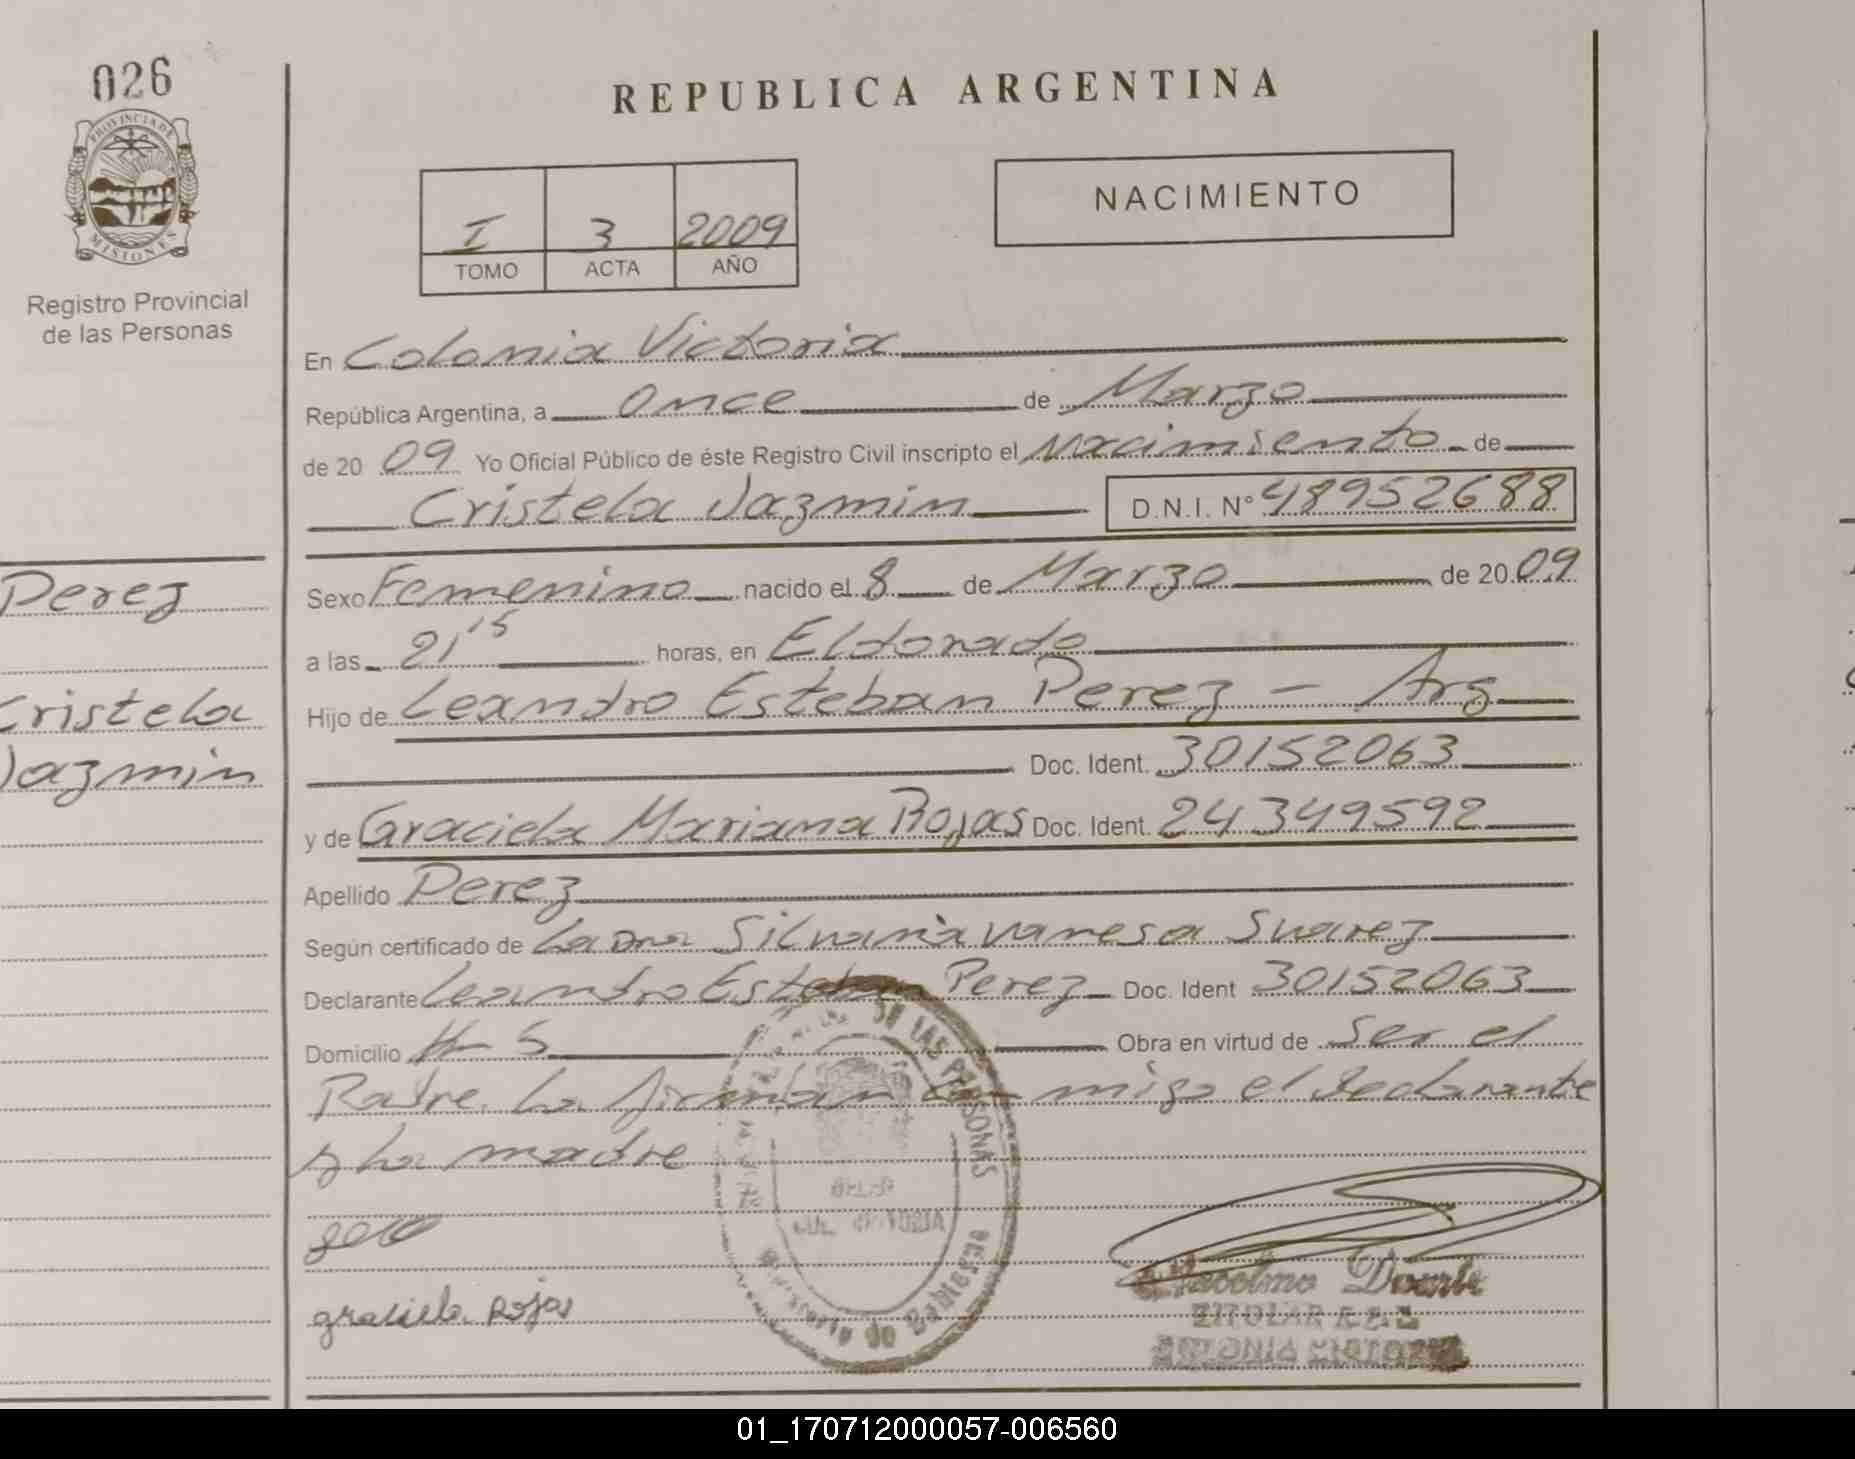 026
PROVINCIA DE
MISIONES
Registro Provincial
de las Personas
Perez
Cristela
Jazmin
REPUBLICA ARGENTINA
I 3 2009
TOMO ACTA AÑO
NACIMIENTO
En Colonia Victoria
República Argentina, a Once de Marzo
de 2009 Yo Oficial Público de éste Registro Civil inscripto el Nacimiento de
Cristela Jazmin D.N.I. Nº 48952688
Sexo Femenino nacido el 8 de Marzo de 2009
a las 21 15 horas, en Eldorado
Hijo de Leandro Esteban Perez - Arg
Doc. Ident. 30152063
y de Graciela Mariana Rojas Doc. Ident. 24349592
Apellido Perez
Según certificado de La Dra Silvana Vanesa Suarez
Declarante Leandro Esteban Perez Doc. Ident 30152063
Domicilio 5 Obra en virtud de Ser el
Padre. La firman con migo el declarante
y la madre
DE LAS PERSONAS
graciela Rojas
Duarte
TITULAR